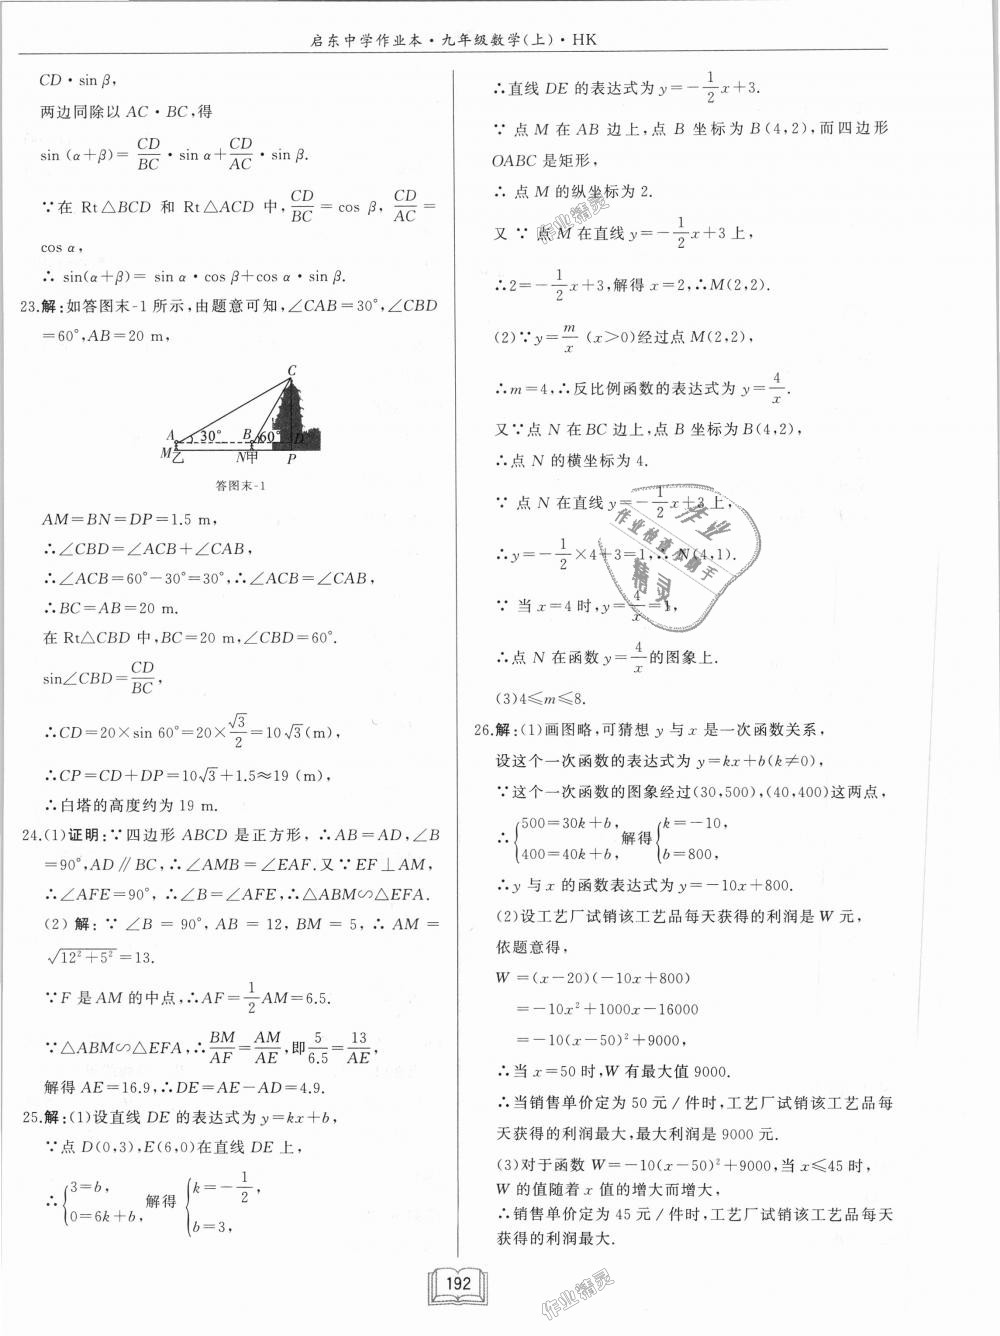 启东中学作业本·九年级数学(上)·HK
CD·sin β,
两边同除以 AC·BC,得
sin (α+β)= CD/BC·sin α+CD/AC·sin β.
∵在 Rt△BCD 和 Rt△ACD 中, CD/BC = cos β, CD/AC =
cos α,
∴ sin(α+β)= sin α·cos β+cos α·sin β.
23.解:如答图末-1 所示,由题意可知,∠CAB=30°,∠CBD
=60°,AB=20 m,
C
A 30° B 60° D
M乙 N甲 P
答图末-1
AM=BN=DP=1.5 m,
∴∠CBD=∠ACB+∠CAB,
∴∠ACB=60°-30°=30°,∴∠ACB=∠CAB,
∴BC=AB=20 m.
在 Rt△CBD 中,BC=20 m,∠CBD=60°.
sin∠CBD=CD/BC,
∴CD=20×sin 60°=20×√3/2=10√3(m),
∴CP=CD+DP=10√3+1.5≈19 (m),
∴白塔的高度约为 19 m.
24.(1)证明:∵四边形 ABCD 是正方形, ∴AB=AD,∠B
=90°,AD∥BC,∴∠AMB=∠EAF.又∵EF⊥AM,
∴∠AFE=90°, ∴∠B=∠AFE,∴△ABM∽△EFA.
(2) 解: ∵ ∠B = 90°, AB = 12, BM = 5, ∴ AM =
√(12²+5²)=13.
∵F 是AM 的中点,∴AF=1/2AM=6.5.
∵△ABM∽△EFA,∴BM/AF=AM/AE,即5/6.5=13/AE,
解得 AE=16.9,∴DE=AE-AD=4.9.
25.解:(1)设直线 DE 的表达式为 y=kx+b,
∵点 D(0,3),E(6,0)在直线 DE 上,
∴{3=b, 0=6k+b, 解得 {k=-1/2, b=3,
∴直线 DE 的表达式为 y=-1/2x+3.
∵ 点 M 在 AB 边上,点 B 坐标为 B(4,2),而四边形
OABC 是矩形,
∴ 点 M 的纵坐标为 2.
又 ∵ 点 M 在直线 y=-1/2x+3 上,
∴2=-1/2x+3,解得 x=2,∴M(2,2).
(2)∵y=m/x (x>0)经过点 M(2,2),
∴m=4,∴反比例函数的表达式为 y=4/x.
又∵点 N 在 BC 边上,点 B 坐标为B(4,2),
∴点 N 的横坐标为 4.
∵ 点 N 在直线 y=-1/2x+3 上,
∴y=-1/2×4+3=1,∴N(4,1).
∵ 当 x=4 时,y=4/x=1,
∴点 N 在函数 y=4/x的图象上.
(3)4≤m≤8.
26.解:(1)画图略,可猜想 y 与 x 是一次函数关系,
设这个一次函数的表达式为 y=kx+b(k≠0),
∵这个一次函数的图象经过(30,500),(40,400)这两点,
∴{500=30k+b, 400=40k+b, 解得{k=-10, b=800,
∴y 与 x 的函数表达式为 y=-10x+800.
(2)设工艺厂试销该工艺品每天获得的利润是 W 元,
依题意得,
W =(x-20)(-10x+800)
=-10x²+1000x-16000
=-10(x-50)²+9000,
∴当 x=50 时,W 有最大值 9000.
∴当销售单价定为 50 元/件时,工艺厂试销该工艺品每
天获得的利润最大,最大利润是 9000 元.
(3)对于函数 W=-10(x-50)²+9000,当 x≤45 时,
W 的值随着 x 值的增大而增大,
∴销售单价定为 45 元/件时,工艺厂试销该工艺品每天
获得的利润最大.
192
作业精灵
作业
作业检查小助手
精灵
作业精灵